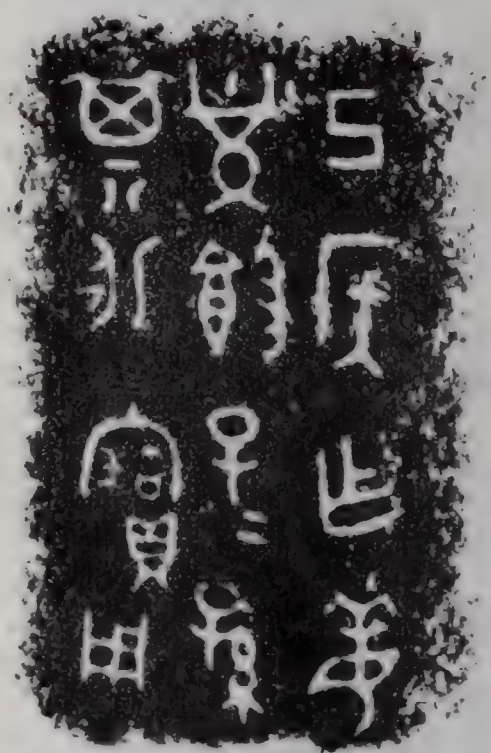 己侯乍姜
縈𣪘子=孫
其永寶用